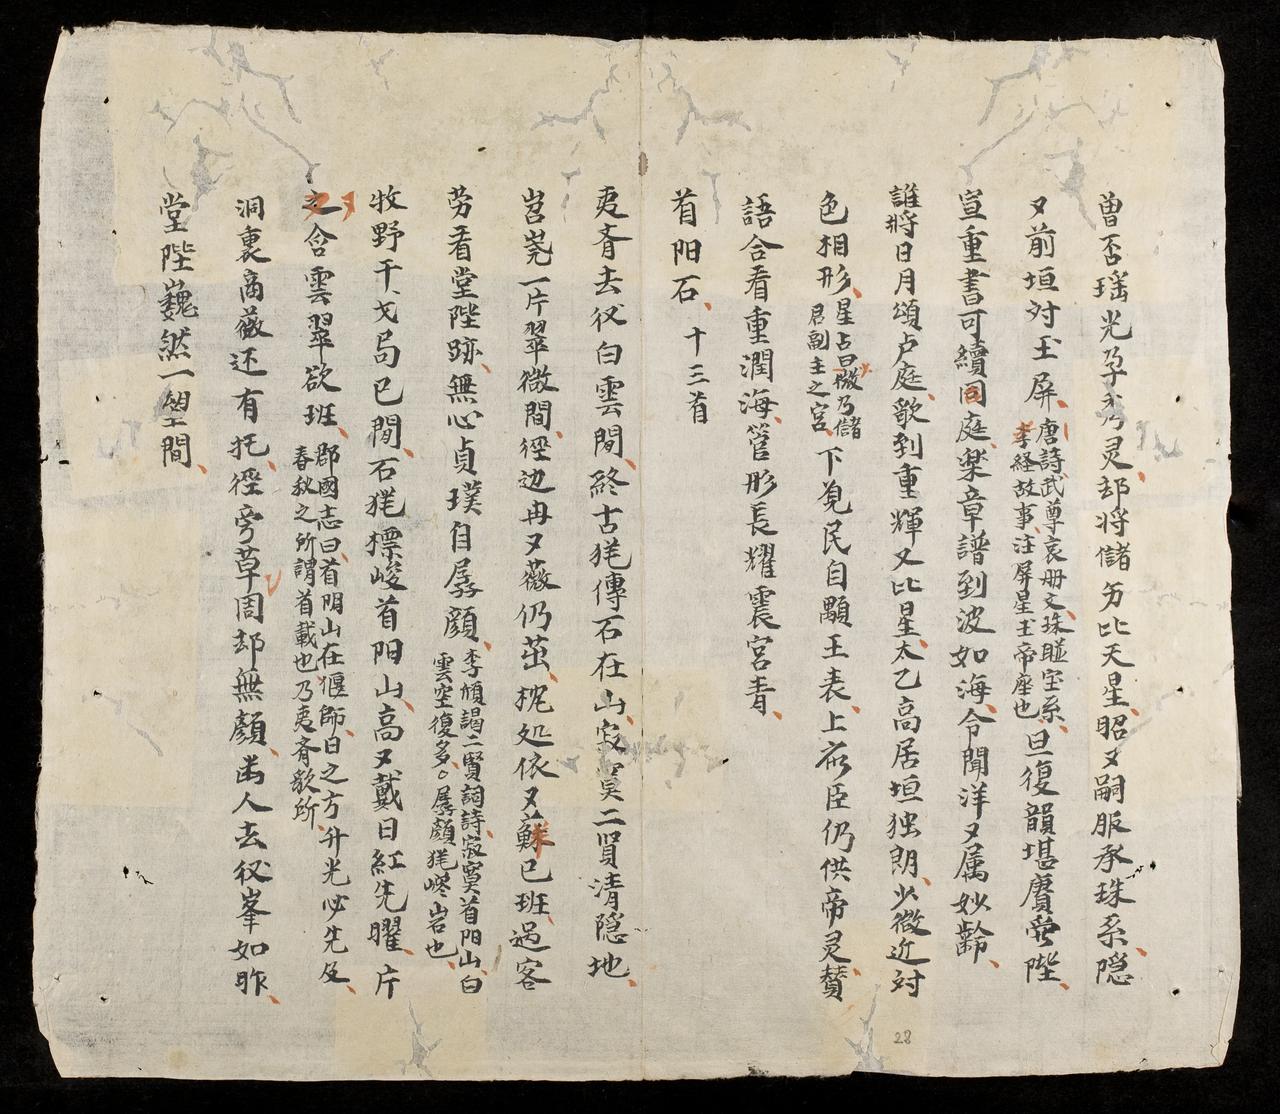 曽否瑤光孕秀灵却将儲易比天星昭又嗣服承珠系隠
又前垣対玉屏唐詩武尊哀册文珠聮宝系
李経故事注屏星玉帝座也旦復韻堪賡帝陛
宣重書可續同庭楽章譜到波如海令聞洋又属妙齡
誰將日月頌卢庭歌到重輝又比星太乙高居垣独朗少微近対
色相形星占曰微乃儲
君副主之宮下覓民自顒王表上衣臣仍供帝灵賛
語合看重潤海筐形長耀震宮青
首阳石 十三首
夷齊去後白雲閒終古猶傳石在山寂寞二賢清隠地
岧嶤一片翠微間徑边冉又薇仍茁桄処依又蘇已班過客
劳看堂陛跡無心貞璞自孱顔李頎謁二賢詞詩寂寞首阳山白
雲空復多。孱顔猶嵯岩也
牧野干戈局已閒石猶標峻首阳山高又戴日紅先曜片
又含雲翠欲班郡國志曰首阳山在偃師日之方升光必先及
春秋之所謂首載也乃夷齊歌所
洞裏商薇还有托徑旁草周却無顔出人去後峯如昨
堂陛巍然一望間
28